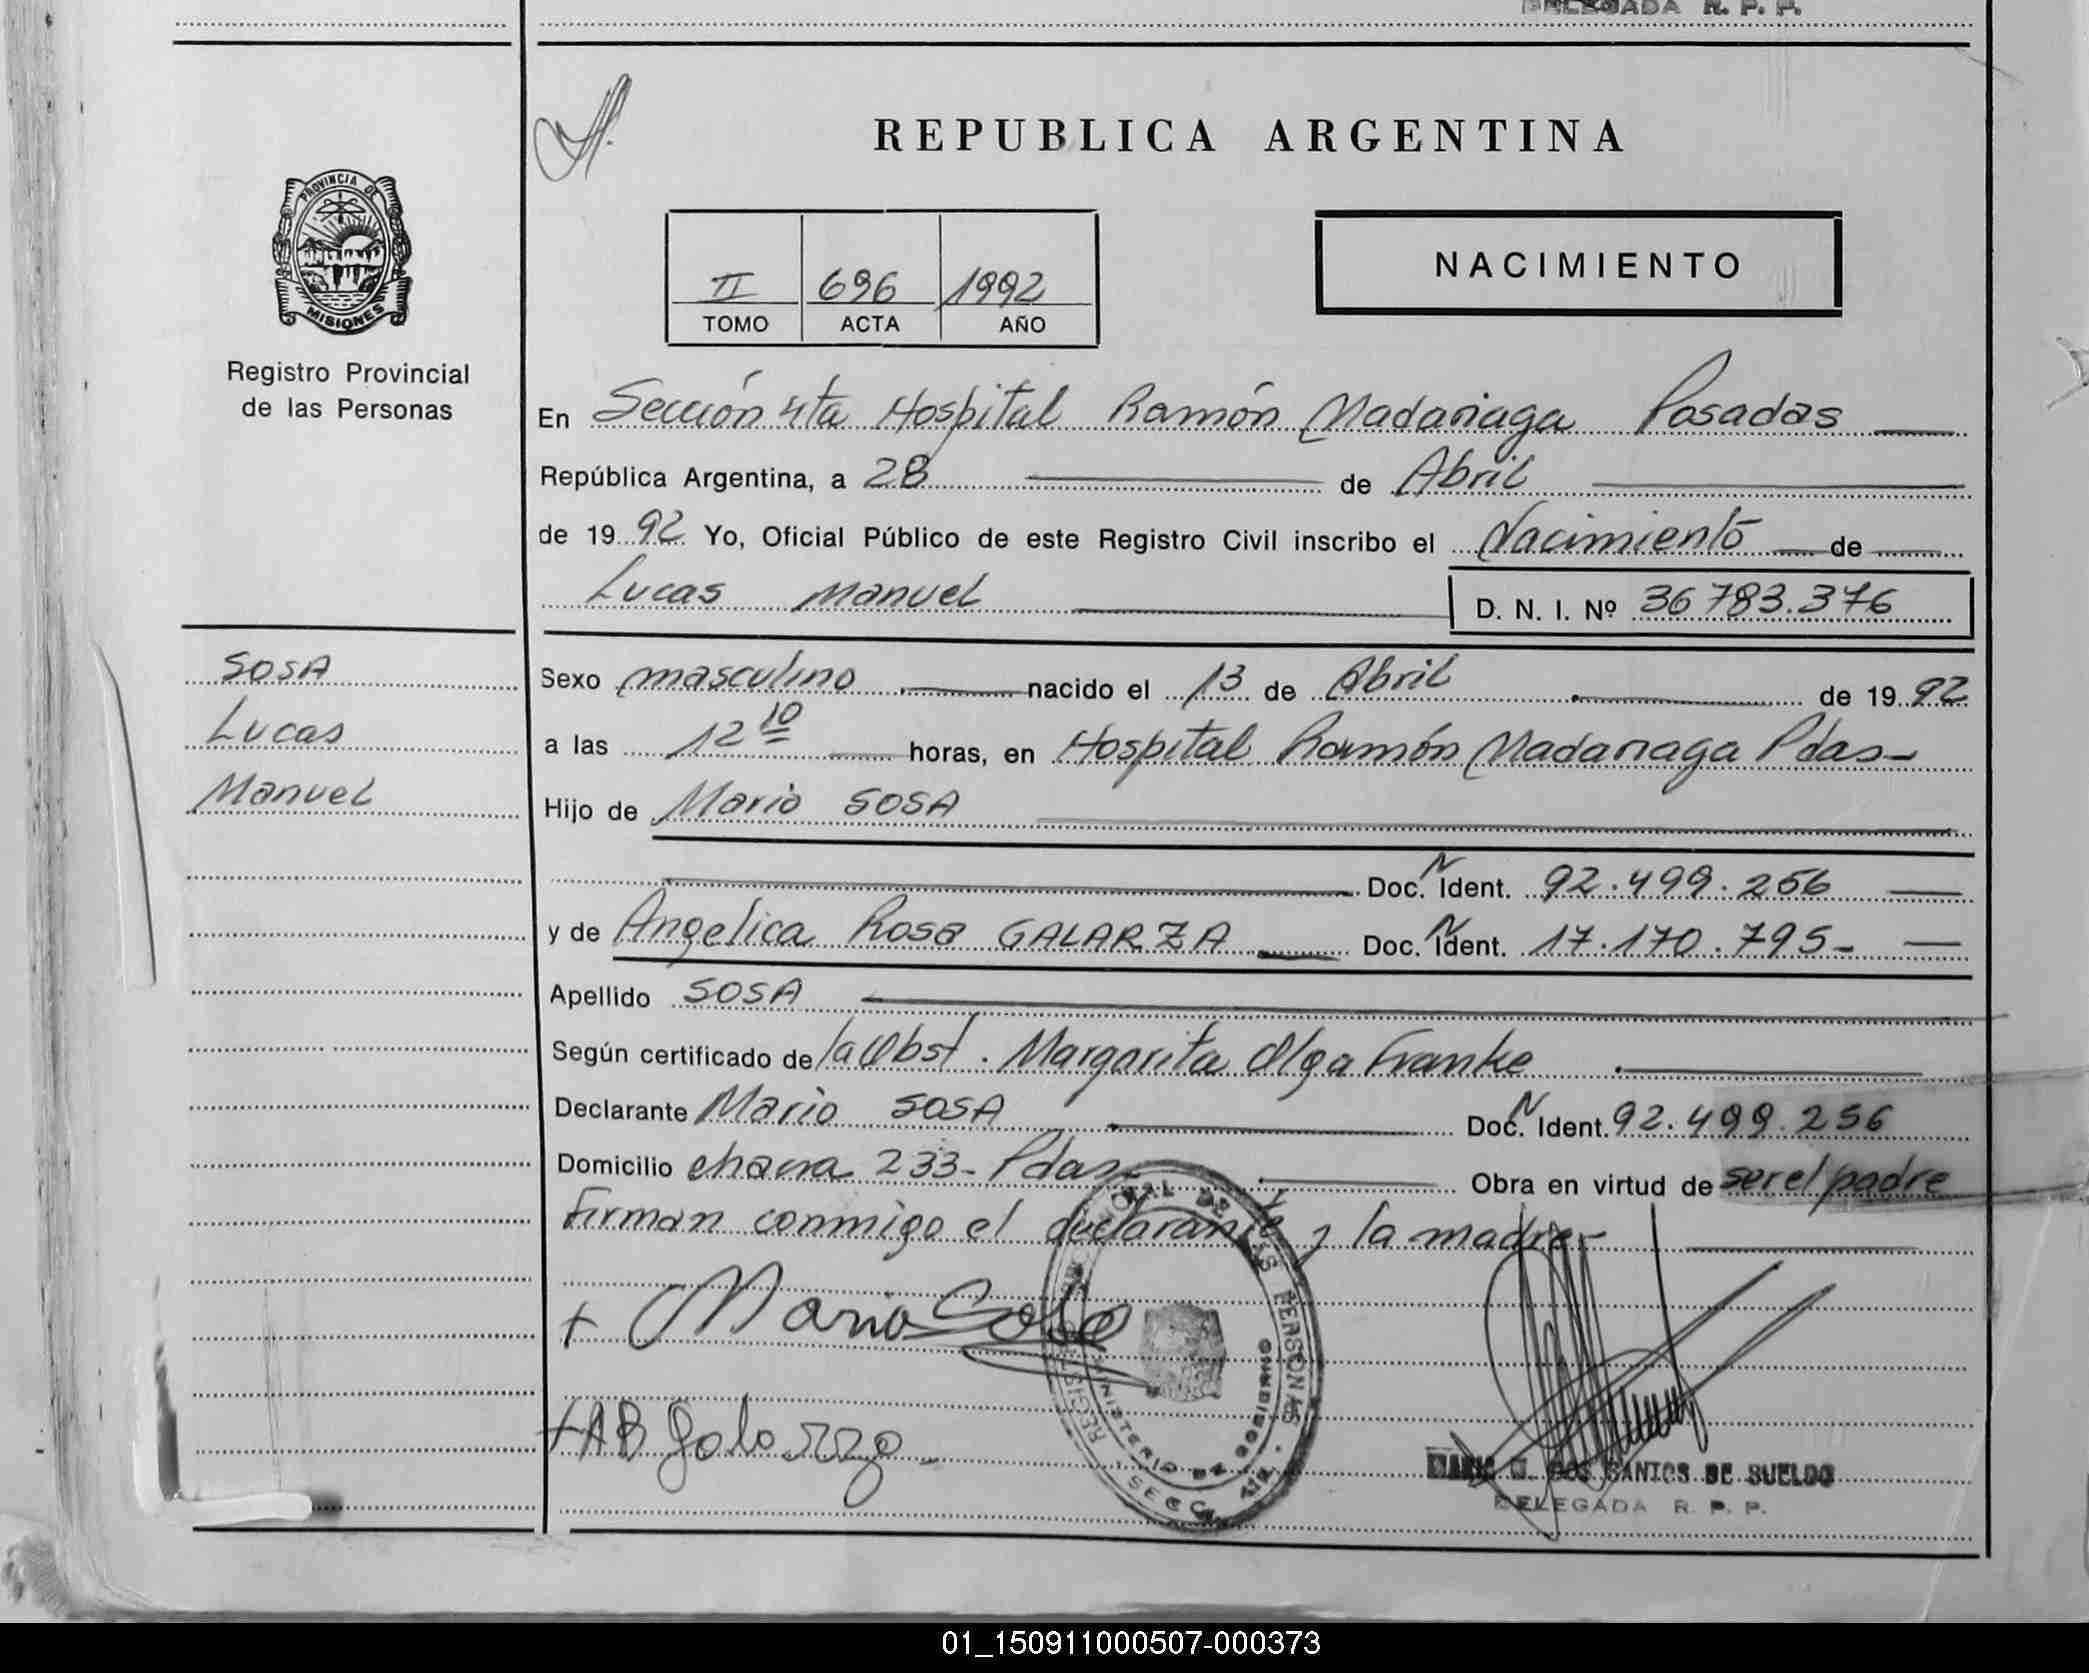 DELEGADA R. P. P.
REPUBLICA ARGENTINA
PROVINCIA DE
MISIONES
Registro Provincial
de las Personas
II 696 1992
TOMO ACTA AÑO
NACIMIENTO
En Sección 4ta Hospital Ramón Madariaga Posadas
República Argentina, a 28 de Abril
de 1992 Yo, Oficial Público de este Registro Civil inscribo el Nacimiento de
Lucas Manuel D. N. I. Nº 36783.376
SOSA
Lucas
Manuel
Sexo masculino nacido el 13 de Abril de 1992
a las 12 10 horas, en Hospital Ramón Madariaga Pdas-
Hijo de Mario SOSA
Doc. N Ident. 92.499.256
y de Angelica Rosa GALARZA Doc. N Ident. 17.170.795-
Apellido SOSA
Según certificado de la Obst. Margarita Olga Franke
Declarante Mario SOSA Doc. N Ident. 92.499.256
Domicilio chacra 233- Pdas- Obra en virtud de ser el padre
Firman conmigo el declarante y la madre-
+ Mario Sosa
+ AR Galarza
REGISTRO PROVINCIAL DE LAS PERSONAS
MINISTERIO DE GOBIERNO
SECC. 4ta.
DOS SANTOS DE SUELDO
DELEGADA R. P. P.
01_150911000507-000373